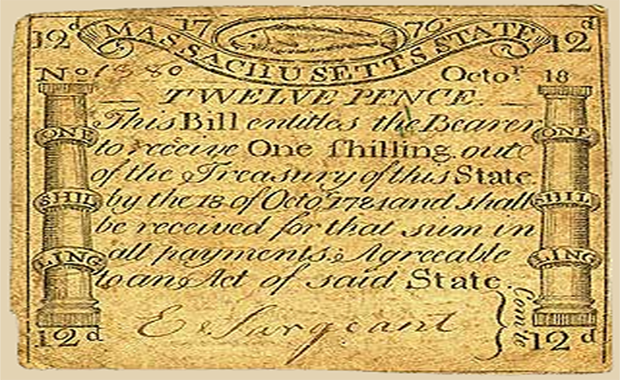 12d 17 76 12d
MASSACHUSETTS STATE
No 1380 Octor 18
TWELVE PENCE.
This Bill entitles the Bearer
to receive One ſhilling out
of the Treasury of this State
by the 18 of Octo 1784 and shall
be received for that sum in
all payments Agreeable
to an Act of said State.
ONE ONE
SHIL SHIL
LING LING
E Sargeant
Comte
12d 12d